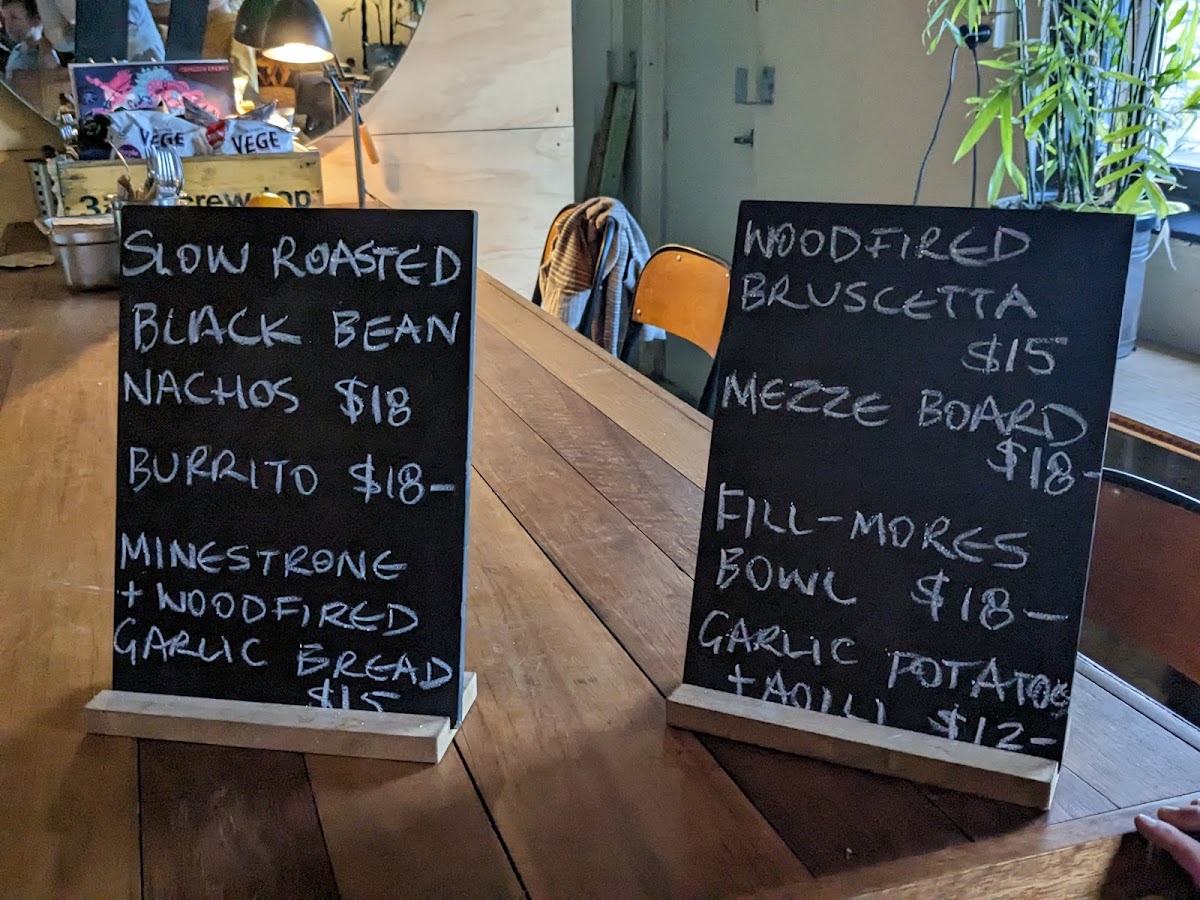 VEGE
VEGE
crew top
SLOW ROASTED
BLACK BEAN
NACHOS $18
BURRITO $18-
MINESTRONE
+ WOODFIRED
GARLIC BREAD
$15
WOODFIRED
BRUSCETTA
$15
MEZZE BOARD
$18-
FILL-MORES
BOWL $18-
GARLIC POTATOS
+ AOILI $12-